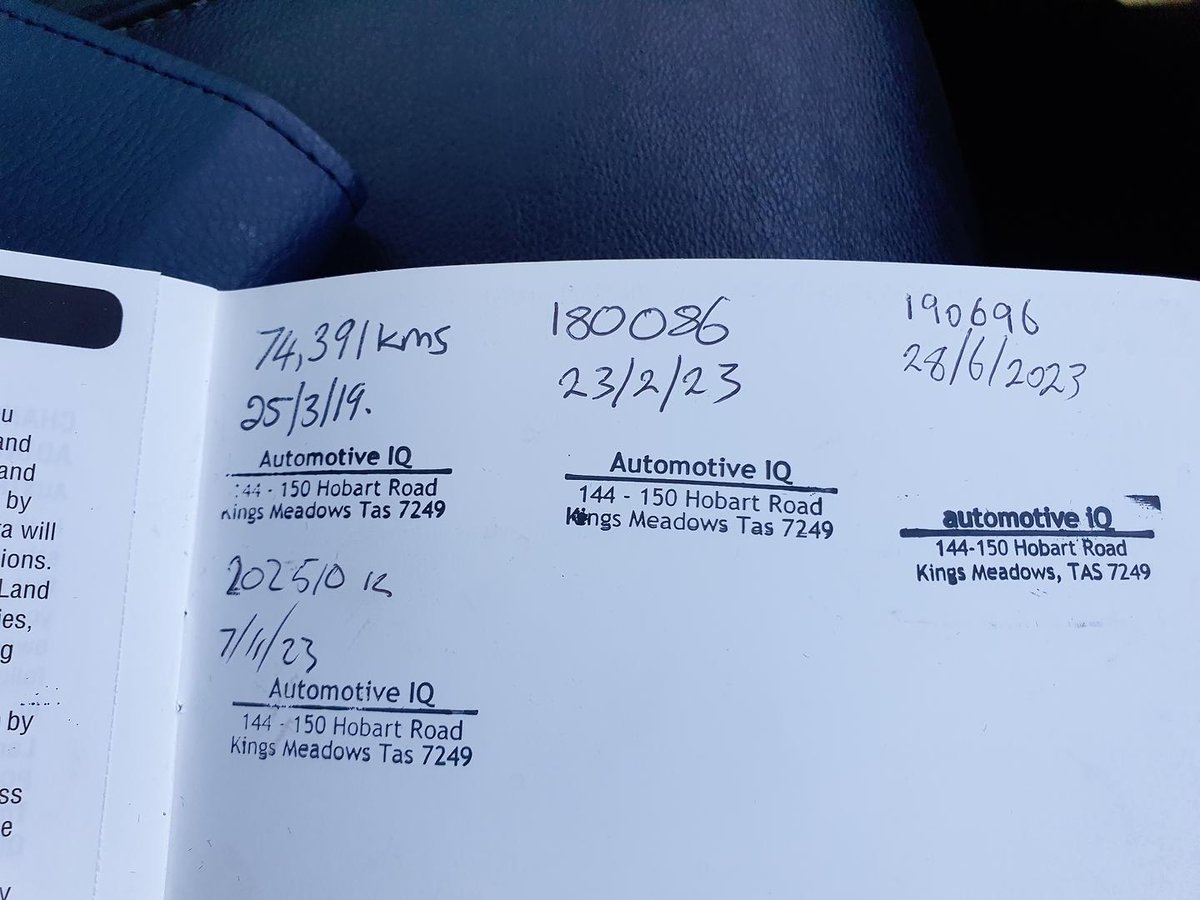 u
and
and
by
a will
ions.
Land
ies,
g
by
ss
e
y
74,391 kms
25/3/19.
Automotive IQ
144 - 150 Hobart Road
Kings Meadows Tas 7249
180086
23/2/23
Automotive IQ
144 - 150 Hobart Road
Kings Meadows Tas 7249
190696
28/6/2023
automotive iQ
144-150 Hobart Road
Kings Meadows, TAS 7249
202510 K
7/11/23
Automotive IQ
144 - 150 Hobart Road
Kings Meadows Tas 7249